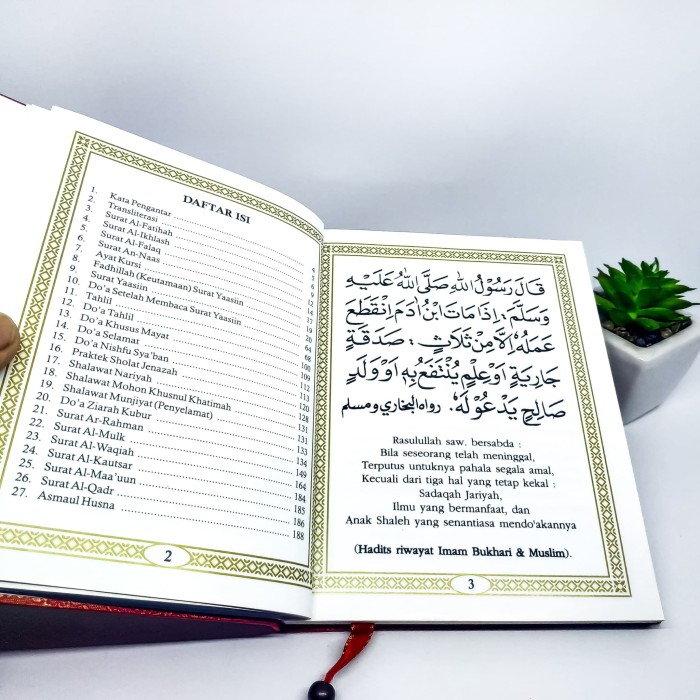 DAFTAR ISI
1. Kata Pengantar
2. Transliterasi
3. Surat Al-Fatihah
4. Surat Al-Ikhlash
5. Surat Al-Falaq
6. Surat An-Naas
7. Ayat Kursi
8. Fadhillah (Keutamaan) Surat Yaasiin
9. Surat Yaasiin
10. Do'a Setelah Membaca Surat Yaasiin
11. Tahlil
12. Do'a Tahlil
13. Do'a Khusus Mayat
14. Do'a Selamat
15. Do'a Nishfu Sya'ban
16. Praktek Sholat Jenazah
17. Shalawat Nariyah
18. Shalawat Mohon Khusnul Khatimah
19. Shalawat Munjiyat (Penyelamat)
20. Do'a Ziarah Kubur
21. Surat Ar-Rahman 134
22. Surat Al-Mulk 149
23. Surat Al-Waqiah 164
24. Surat Al-Kautsar 184
25. Surat Al-Maa'uun 185
26. Surat Al-Qadr 186
27. Asmaul Husna 188
2
قَالَ رَسُوْلُ اللهِ صَلَّى اللهُ عَلَيْهِ
وَسَلَّمَ: اِذَا مَاتَ ابْنُ اٰدَمَ اِنْقَطَعَ
عَمَلُهُ اِلَّا مِنْ ثَلَاثٍ: صَدَقَةٍ
جَارِيَةٍ اَوْ عِلْمٍ يُنْتَفَعُ بِهِ اَوْ وَلَدٍ
صَالِحٍ يَدْعُوْ لَهُ. رواه البخاري ومسلم
Rasulullah saw. bersabda :
Bila seseorang telah meninggal,
Terputus untuknya pahala segala amal,
Kecuali dari tiga hal yang tetap kekal :
Sadaqah Jariyah,
Ilmu yang bermanfaat, dan
Anak Shaleh yang senantiasa mendo'akannya
(Hadits riwayat Imam Bukhari & Muslim).
3